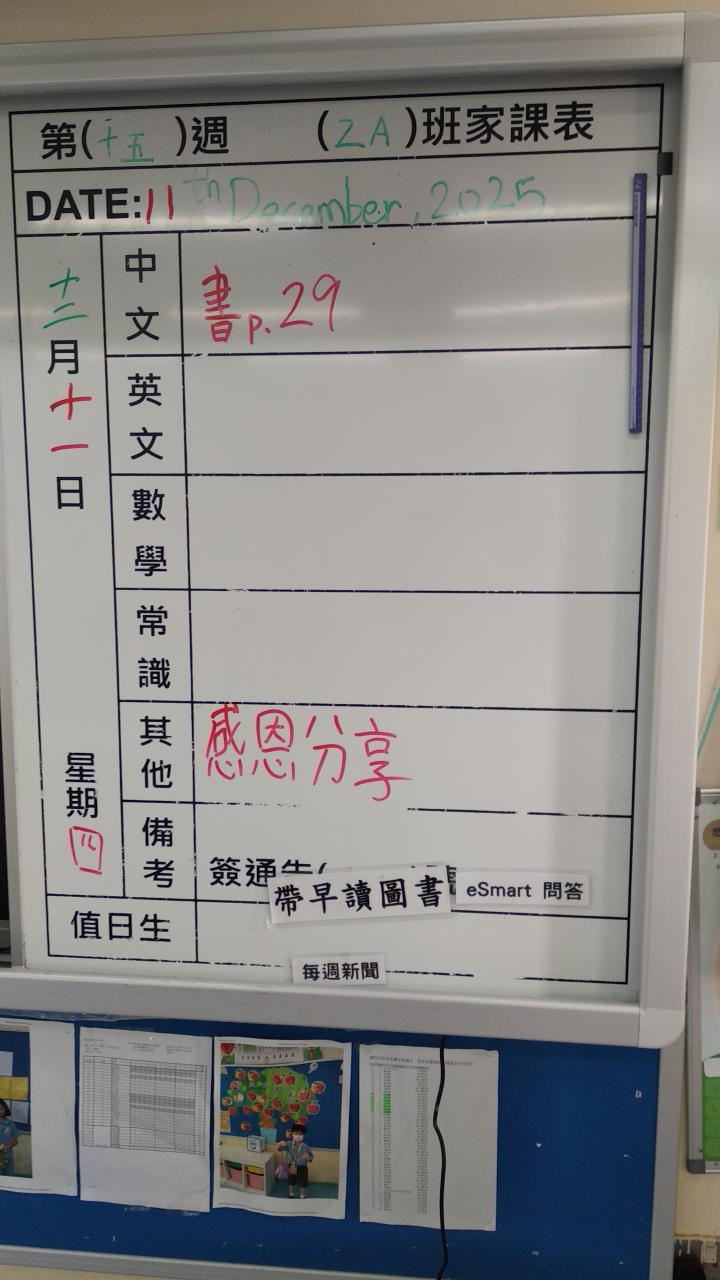 第(十五)週 (2A)班家課表
DATE: 11th December, 2025
十二月十一日
星期四
中文 書p.29
英文
數學
常識
其他 感恩分享
備考 簽通告(
帶早讀圖書
eSmart 問答
值日生
每週新聞